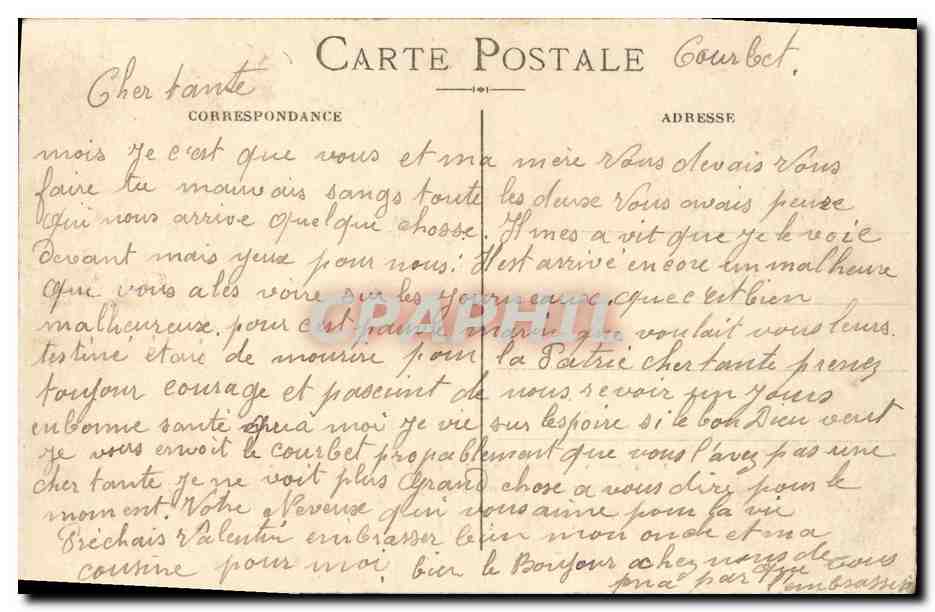 CARTE POSTALE Courbet.
Cher tante
CORRESPONDANCE
ADRESSE
mois Je c'est que vous et ma mère vous devais vous
faire tu mauvais sangs toute les deuxe vous avais peuze
qui nous arrive quelque chosse. Il mes a vit que Je le voie
devant mais yeux pour nous! Il est arrivé encore un malheure
que vous a les voire sur les Journeaux. que c'est bien
malheureux. pour c'est pauvre marin que voulait vous leurs
testiné étaie de mourire pour la Patrie cher tante prenez
toujour courage et pascient de nous revoir un Jours
en bonne santé qua moi Je vie sur l'espoire si le bon Dieu veut
Je vous envoit le courbet propablement que vous l'avez pas une
cher tante Je ne voit plus Grand chose a vous dire pour le
moment. Votre Neveux qui vous aime pour la vie
Préchais Valentin embrasser bien mon oncle et ma
cousine pour moi. bien le Bonjour a chez nous de
par que vous
embrassin
CPAPHIL